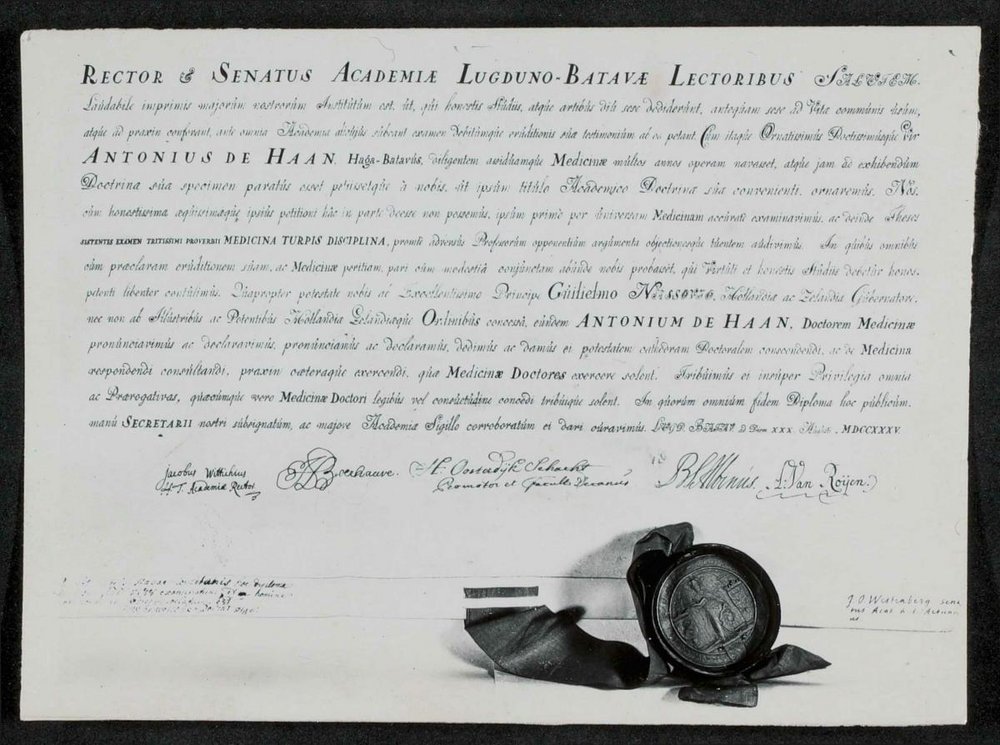 RECTOR & SENATUS ACADEMIÆ LUGDUNO-BATAVÆ LECTORIBUS SALUTEM.
Laudabile imprimis majorùm nostrorùm Institùtùm est, ùt, qùi honestis stùdiis, atqùe artibùs diù sese dediderùnt, anteqùam sese ad Vitæ commùnis ùsùm,
atqùe ad praxin conferant, ante omnia Academia sùbeant examen debitùmqùe erùditionis sùæ testimonium ab ea petant. Cùm itaqùe Ornatissimùs Doctissimùsqùe Vir
ANTONIUS DE HAAN, Haga-Batavùs, diligentem assidùamqùe Medicinæ mùltos annos operam navasset, atqùe jam ad exhibendùm
Doctrinæ sùæ specimen paratùs esset petiissetqùe à nobis, ùt ipsùm titùlo Academico Doctrinæ sùæ convenienti, ornaremùs, Nos,
cùm honestissimæ æqùissimæqùe ipsiùs petitioni hàc in parte deesse non possemùs, ipsùm primò per ùniversam Medicinam accùratè examinavimùs, ac deinde Theses
SISTENTES EXAMEN TRITISSIMI PROVERBII MEDICINA TURPIS DISCIPLINA, promtè adversùs Professorùm opponentiùm argùmenta objectionesqùe tùentem aùdivimùs. In qùibùs omnibùs
cùm præclaram erùditionem sùam, ac Medicinæ peritiam, pari cùm modestiâ conjùnctam abùnde nobis probasset, qùi Virtùti et honestis stùdiis debetùr honos,
petenti libenter contùlimùs. Qùapropter potestate nobis ab Excellentissimo Principe Gùilielmo Nassovio, Hollandiæ ac Zelandiæ Gùbernatore,
nec non ab Illùstribùs ac Potentibùs Hollandiæ Zelandiæqùe Ordinibùs concessâ, eùndem ANTONIUM DE HAAN, Doctorem Medicinæ
pronùnciavimùs ac declaravimùs, pronùnciamùs ac declaramùs, dedimùs ac damùs ei potestatem cathedram Doctoralem conscendendi, ac de Medicina
respondendi consùltandi, praxin cæteraqùe exercendi, qùæ Medicinæ Doctores exercere solent. Tribùimùs ei insùper Privilegia omnia
ac Prærogativas, qùæcùmqùe vero Medicinæ Doctori legibùs vel consùetùdine concedi tribùiqùe solent. In qùorùm omniùm fidem Diploma hoc pùblicùm,
manù SECRETARII nostri sùbsignatùm, ac majore Academiæ Sigillo corroboratùm ei dari cùravimùs. LUGD. BATAV. XXX MDCCXXXV.
Jacobus Wittichius HBoerhaave. H. Oosterdyk Schacht BSAlbinús A: Van Roijen
H. T. Academiæ Rector Promotor et facult. Decanus
J. O. Westenberg sena
tus Acad